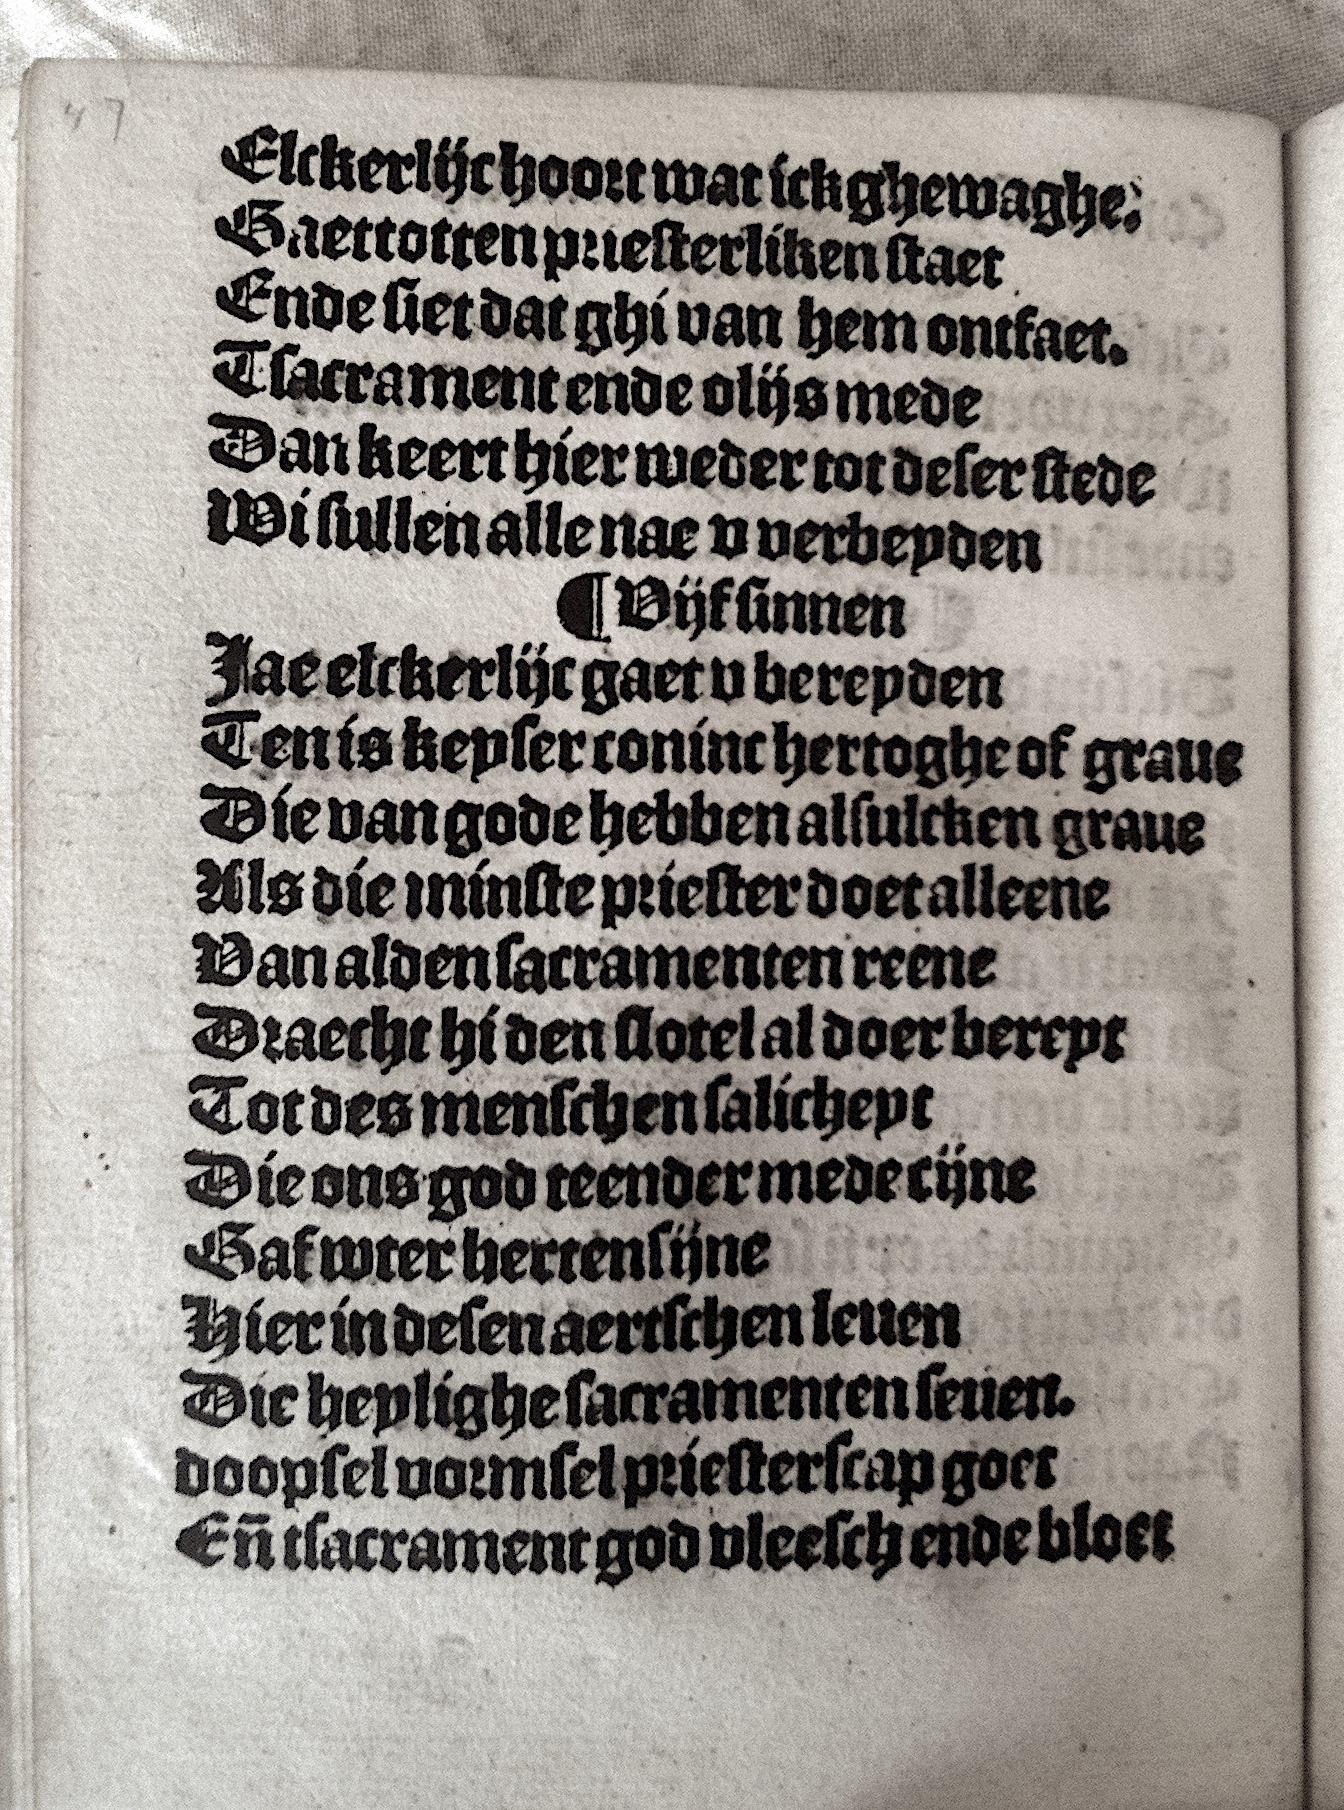 47
Elckerlijc hoort wat ick ghewaghe.
Gaet totten priesterliken staet
Ende siet dat ghi van hem ontfaet.
Tsacrament ende olijs mede
Dan keert hier weder tot deser stede
Wi sullen alle nae v verbeyden
¶ Vijf sinnen
Jae elckerlijc gaet v bereyden
Ten is keyser coninc hertoghe of graue
Die van gode hebben alsulcken graue
Als die minste priester doet alleene
Van alden sacramenten reene
Draecht hi den slotel al doer bereyt
Tot des menschen salicheyt
Die ons god teender medecijne
Gaf wter herten sijne
Hier in desen aertschen leuen
Die heylighe sacramenten seuen.
doopsel vormsel priesterscap goet
Eñ tsacrament god vleesch ende bloet